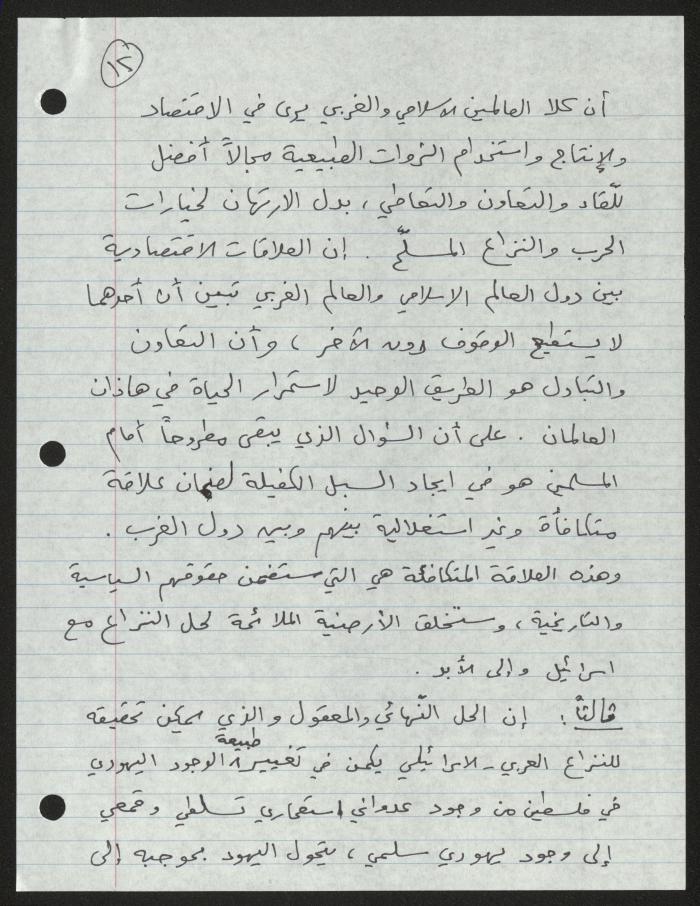 ١٢
أن كلا العالمين الاسلامي والغربي يرى في الاقتصاد
والإنتاج واستخدام الثروات الطبيعية مجالاً أفضل
للّقاء والتعاون والتعاطي ، بدل الارتهان لخيارات
الحرب والنزاع المسلّح . إن العلاقات الاقتصادية
بين دول العالم الاسلامي والعالم الغربي تبين أن أحدهما
لا يستطيع الوقوف دون الآخر ، وأن التعاون
والتبادل هو الطريق الوحيد لاستمرار الحياة في هاذان
العالمان . على أن السؤال الذي يبقى مطروحاً أمام
المسلمين هو في ايجاد السبل الكفيلة لضمان علاقة
متكافأة وغير استغلالية بينهم وبين دول الغرب .
وهذه العلاقة المتكافئة هي التي ستضمن حقوقهم السياسية
والتاريخية ، وستخلق الأرضية الملائمة لحل النزاع مع
اسرائيل وإلى الأبد .
ثالثاً : إن الحل النّهائي والمعقول والذي يمكن تحقيقه
للنزاع العربي - الاسرائيلي يكمن في تغيير طبيعة الوجود اليهودي
في فلسطين من وجود عدواني استعماري تسلطي وقمعي
إلى وجود يهودي سلمي ، يتحول اليهود بموجبه إلى